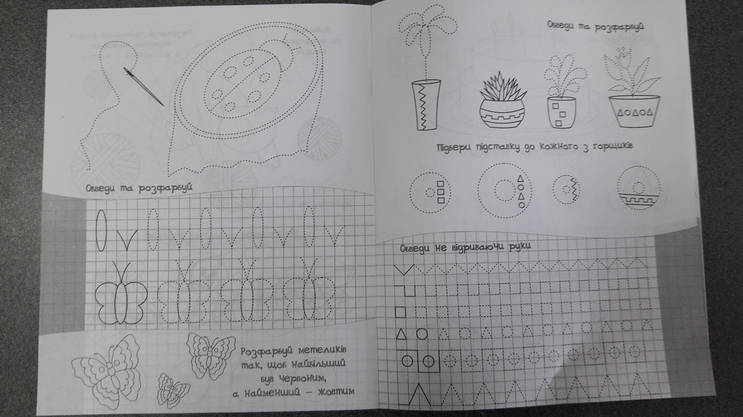 Обведи та розфарбуй
Розфарбуй метеликів
так, щоб найбільший
був червоним,
а найменший – жовтим
Обведи та розфарбуй
Підбери підставку до кожного з горщиків
Обведи не відриваючи руки